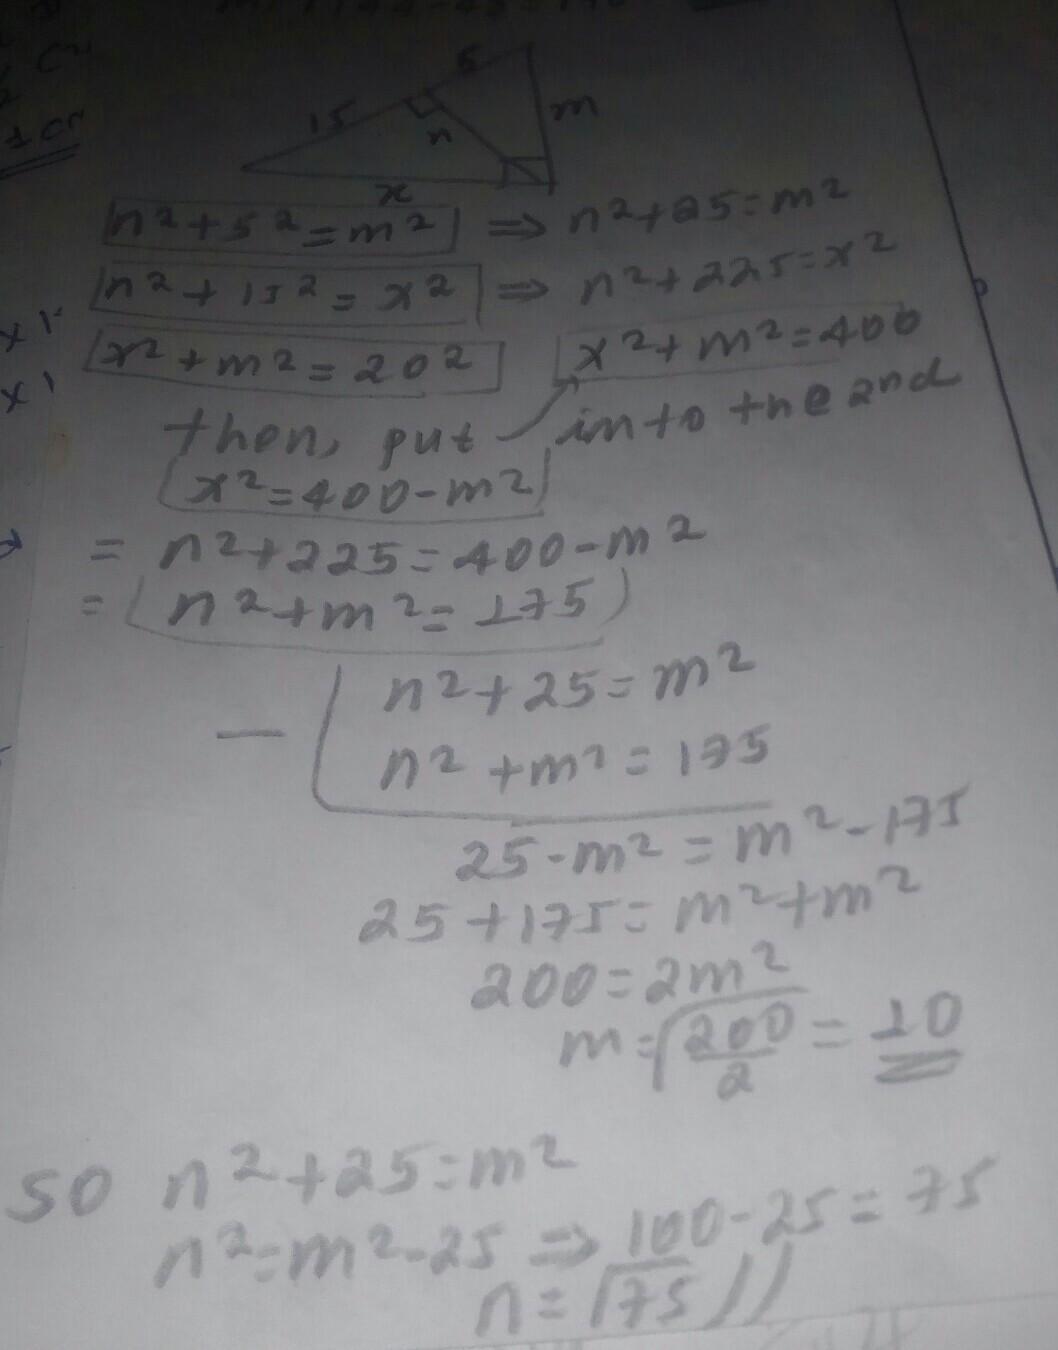 5
15
m
n
x
n²+5²=m² ⇒ n²+25=m²
n²+15²=x² ⇒ n²+225=x²
x²+m²=20² x²+m²=400
then, put into the 2nd
x²=400-m²
= n²+225=400-m²
= n²+m²=175
- n²+25=m²
n²+m²=175
25-m²=m²-175
25+175=m²+m²
200=2m²
m=√200/2=10
so n²+25=m²
n²=m²-25 ⇒ 100-25=75
n=√75//